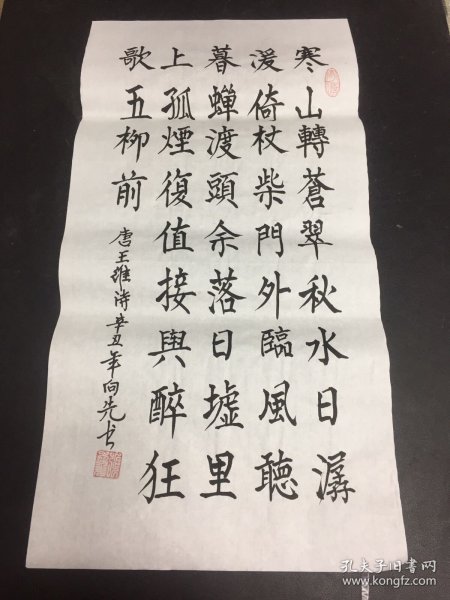 寒山轉蒼翠秋水日潺
湲倚杖柴門外臨風聽
暮蟬渡頭余落日墟里
上孤煙復值接輿醉狂
歌五柳前
唐王維詩辛丑年向先书
孔夫子旧书网
www.kongfz.com